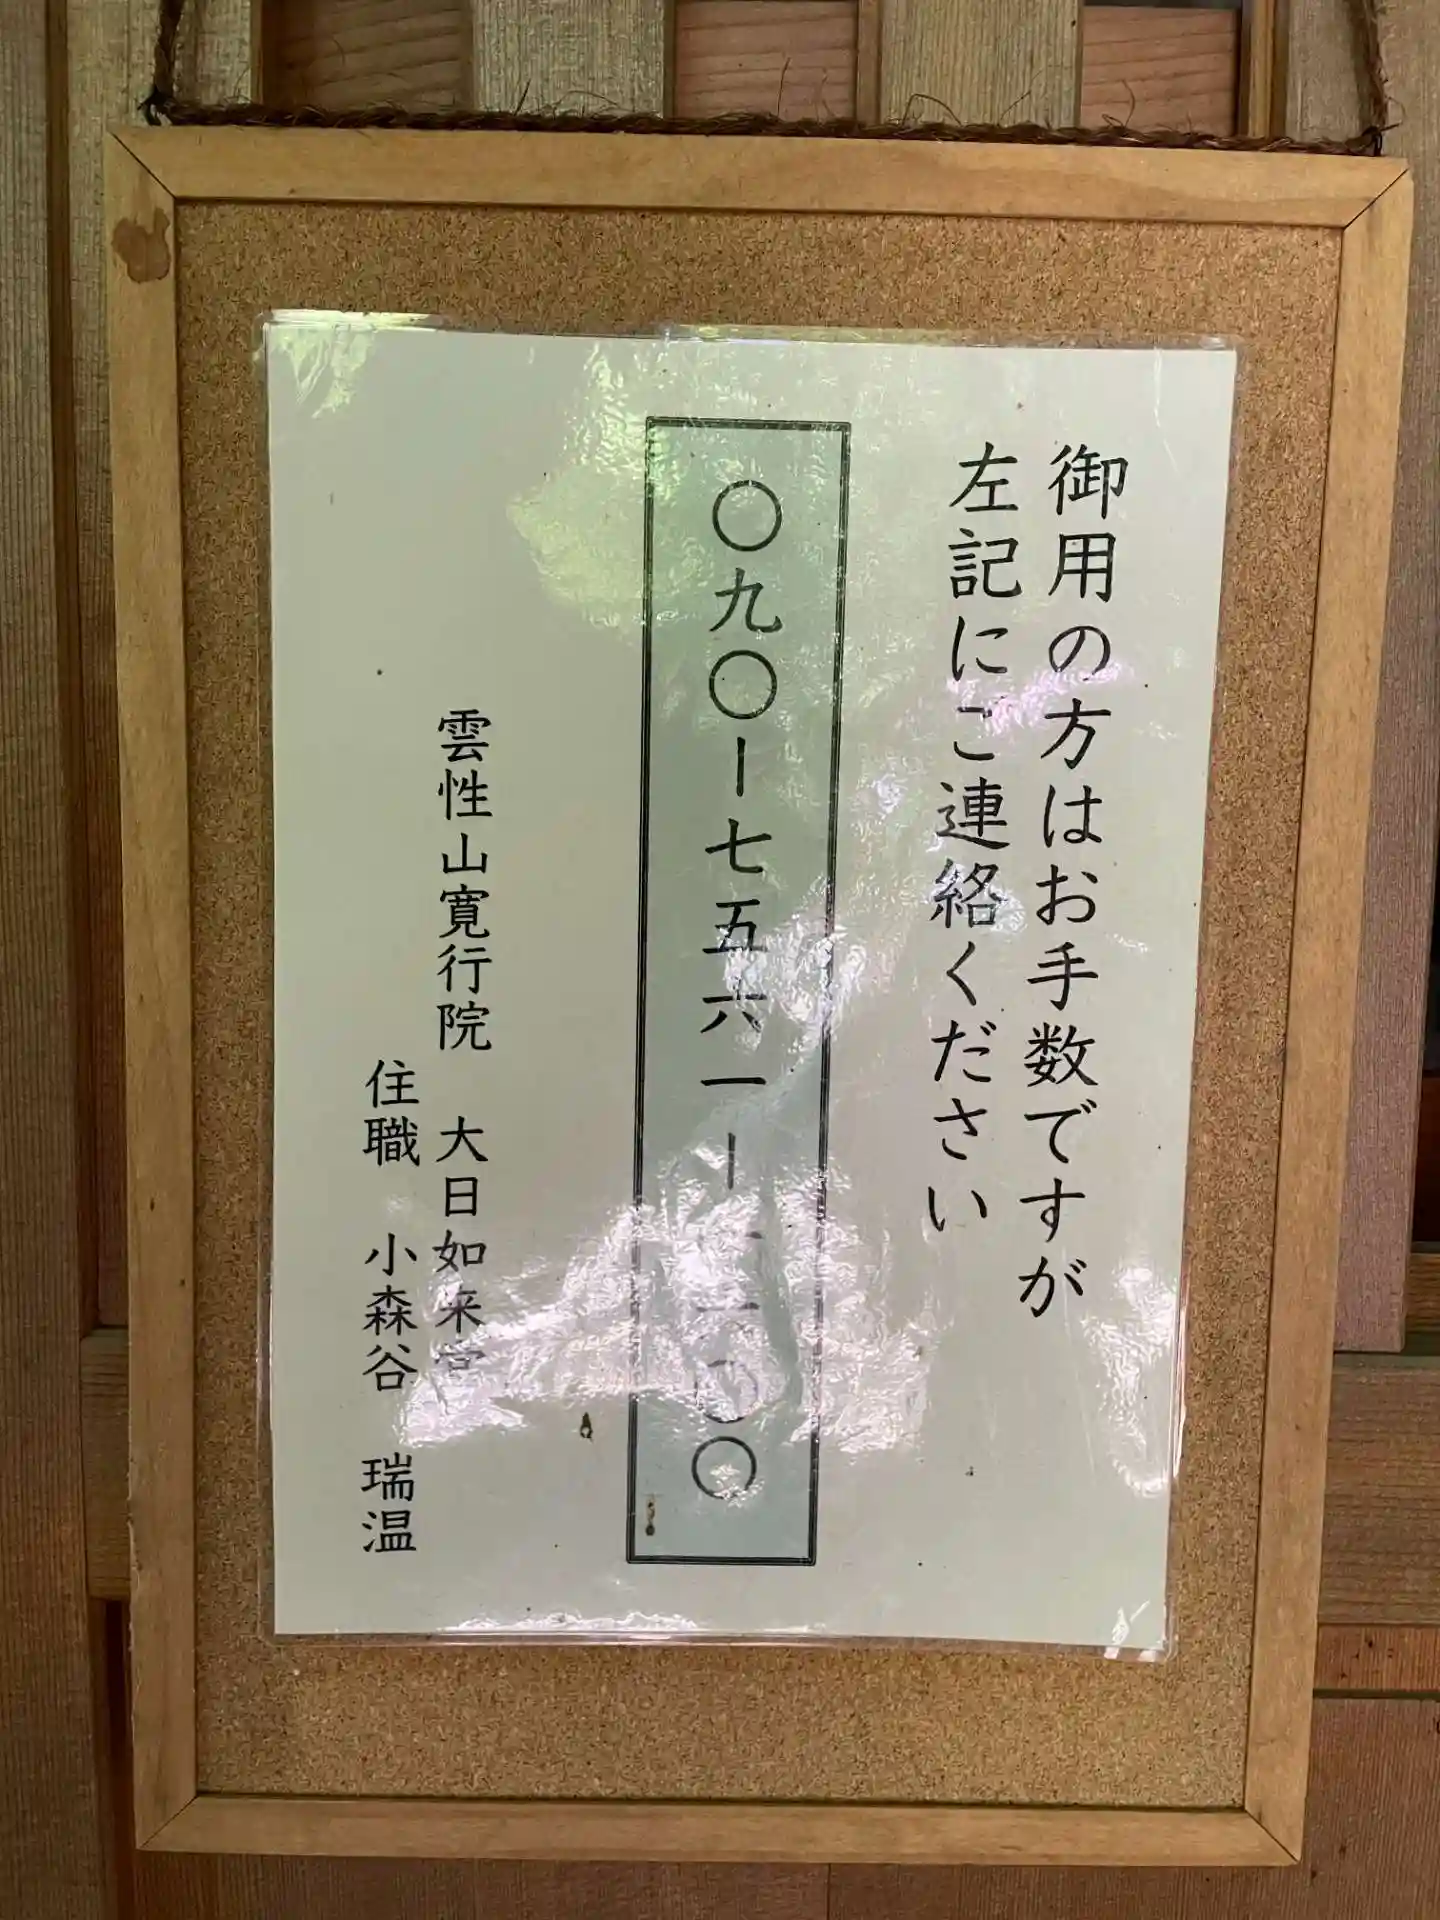 御用の方はお手数ですが
左記にご連絡ください
〇九〇ー七五六一ー
雲性山寛行院 大日如来宮
住職 小森谷 瑞温